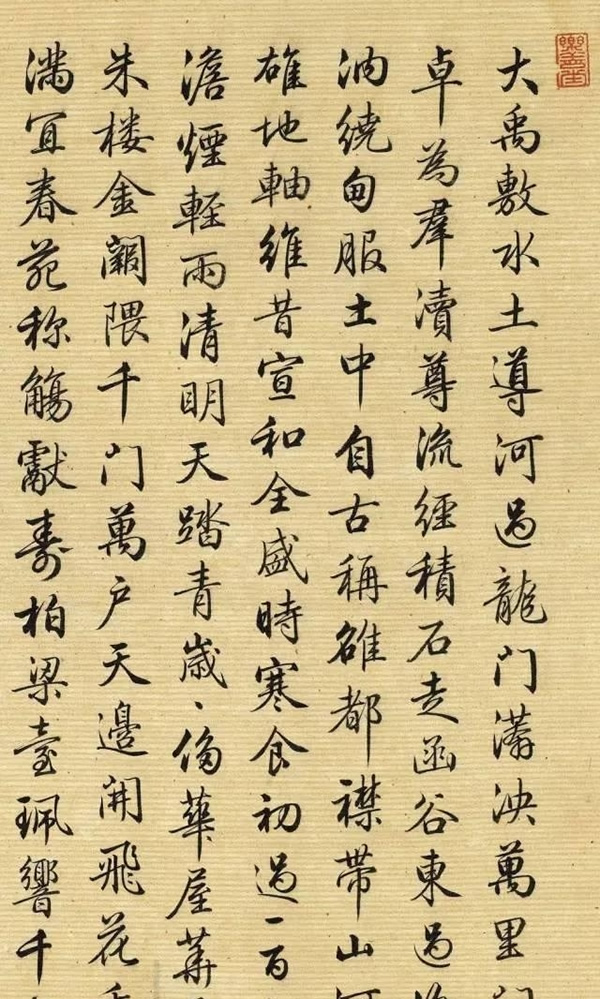 樂善堂
大禹敷水土導河過龍门泱萬里
卓為羣瀆尊流經積石走函谷東過
汭繞甸服土中自古稱雄都襟帶山河
雄地軸維昔宣和全盛時寒食初過一百
澹煙輕雨清明天踏青歲〻侈華屋
朱楼金闕隈千门萬户天邊開飛花
滿宜春苑称觴獻壽柏梁臺珮響千